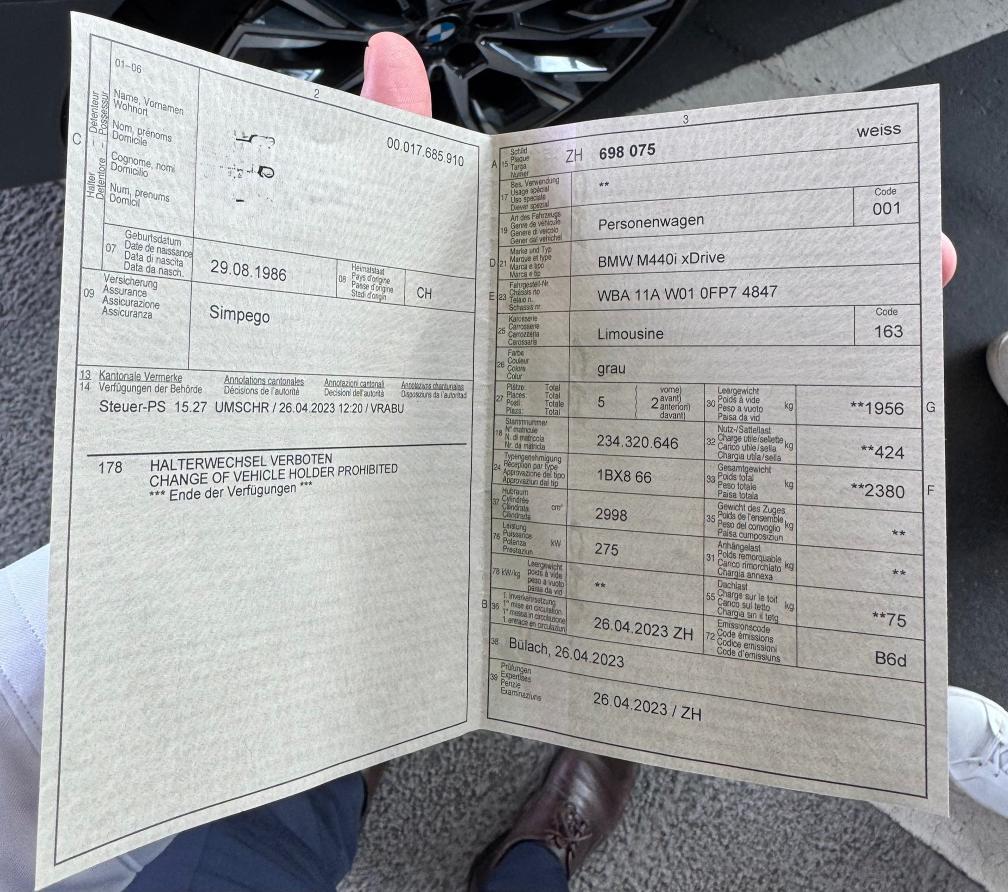 2
01-06
Name, Vornamen
Wohnort
Nom, prénoms
Domicile
Cognome, nomi
Domicilio
Num, prenums
Domicil
C
Halter – Détenteur
Detentore – Possessur
00.017.685.910
07
Geburtsdatum
Date de naissance
Data di nascita
Data da nasch.
29.08.1986
08
Heimatstaat
Pays d'origine
Paese d'origine
Stadi d'origin
CH
09
Versicherung
Assurance
Assicurazione
Assicuranza
Simpego
13 Kantonale Vermerke
14 Verfügungen der Behörde
Annotations cantonales
Décisions de l'autorité
Annotazioni cantonali
Decisioni dell'autorità
Annotaziuns chantunalas
Disposiziuns da l'autoritad
Steuer-PS 15.27 UMSCHR / 26.04.2023 12:20 / VRABU
178 HALTERWECHSEL VERBOTEN
CHANGE OF VEHICLE HOLDER PROHIBITED
*** Ende der Verfügungen ***
3
weiss
A 15
Schild
Plaque
Targa
Numer
ZH 698 075
17
Bes. Verwendung
Usage spécial
Uso speciale
Diever spezial
**
19
Art des Fahrzeugs
Genre de véhicule
Genere di veicolo
Gener dal vehichel
Personenwagen
Code
001
D 21
Marke und Typ
Marque et type
Marca e tipo
Marca e tip
BMW M440i xDrive
E 23
Fahrgestell-Nr
Châssis no
Telaio n.
Schassis nr
WBA 11A W01 0FP7 4847
25
Karosserie
Carrosserie
Carrozzeria
Carossaria
Limousine
Code
163
26
Farbe
Couleur
Colore
Colur
grau
27
Plätze: Total
Places: Total
Posti: Totale
Plazs: Total
5
2
vorne)
avant)
anteriori)
davant)
30
Leergewicht
Poids à vide
Peso a vuoto
Paisa da vid
kg
**1956
G
18
Stammnummer
N° matricule
N. di matricola
Nr. da matricla
234.320.646
32
Nutz-/Sattellast
Charge utile/sellette
Carico utile/sella
Chargia utila/sella
kg
**424
24
Typengenehmigung
Réception par type
Approvazione del tipo
Approvaziun dal tip
1BX8 66
33
Gesamtgewicht
Poids total
Peso totale
Paisa totala
kg
**2380
F
37
Hubraum
Cylindrée
Cilindrata
Cilindrada
cm³
2998
35
Gewicht des Zuges
Poids de l'ensemble
Peso del convoglio
Paisa cumposiziun
kg
**
76
Leistung
Puissance
Potenza
Prestaziun
kW
275
31
Anhängelast
Poids remorquable
Carico rimorchiato
Chargia annexa
kg
**
78 kW/kg
Leergewicht
poids à vide
peso a vuoto
paisa da vid
**
55
Dachlast
Charge sur le toit
Carico sul tetto
Chargia sin il tetg
kg
**75
B 36
1. Inverkehrsetzung
1re mise en circulation
1a messa in circolazione
1. entrada en circulaziun
26.04.2023 ZH
72
Emissionscode
Code émissions
Codice emissioni
Code d'emissiuns
B6d
38
Bülach, 26.04.2023
39
Prüfungen
Expertises
Perizie
Examinaziuns
26.04.2023 / ZH